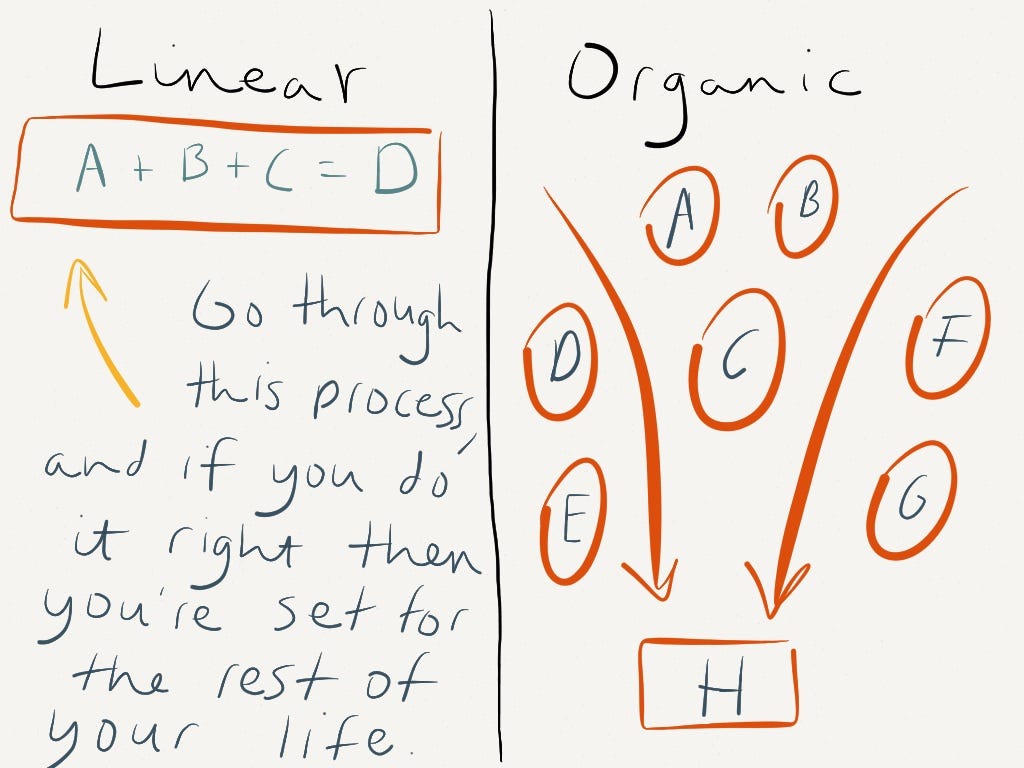 Linear
A + B + C = D
Go through
this process,
and if you do
it right then
you're set for
the rest of
your life.
Organic
A B
D C F
E G
H